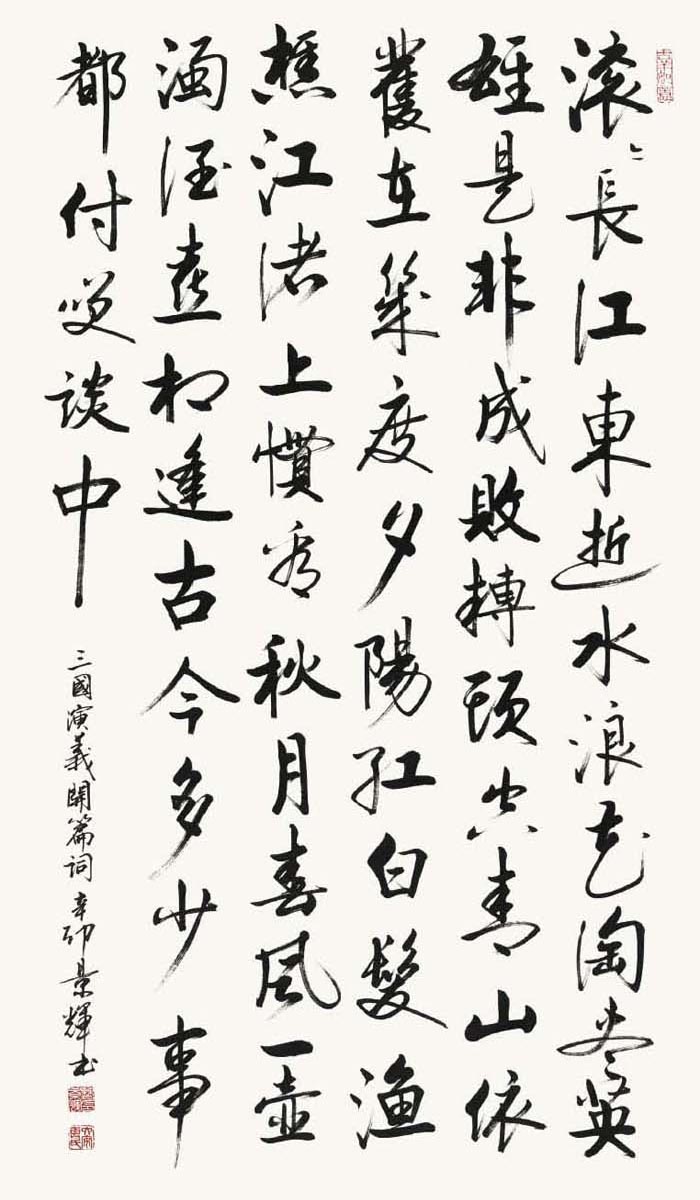 滚々長江東逝水浪花淘尽英
雄是非成敗轉頭空青山依
舊在幾度夕陽紅白髮渔
樵江渚上慣看秋月春風一壺
濁酒喜相逢古今多少事
都付笑談中
三國演義開篇词 辛卯景輝书